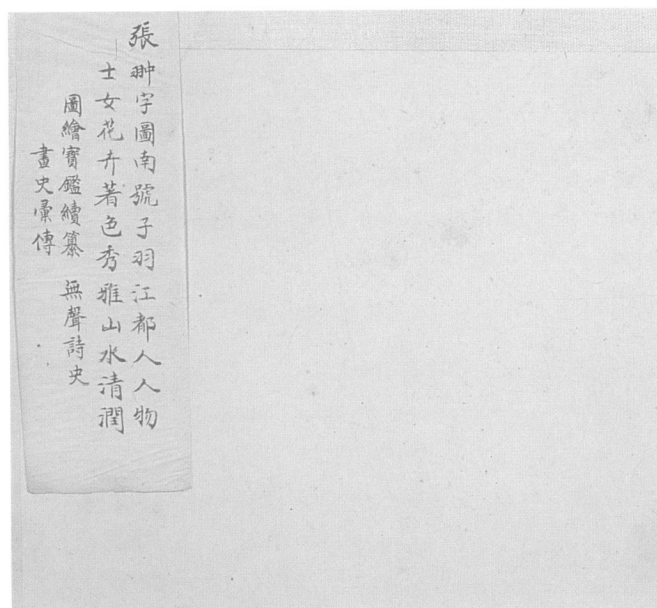 張翀字圖南號子羽江都人人物
士女花卉著色秀雅山水清潤
圖繪寶鑑續纂 無聲詩史
畫史彙傳